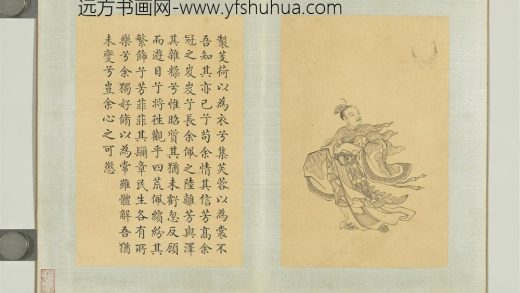 远方书画网-www.yfshuhua.com
製芰荷以為衣兮集芙蓉以為裳不
吾知其亦已兮苟余情其信芳髙余
冠之岌岌兮長余佩之陸離芳與澤
其雜糅兮惟昭質其猶未虧忽反顧
而遊目兮將往觀乎四荒佩繽紛其
繁飾兮芳菲菲其彌章民生各有所
樂兮余獨好脩以為常雖體解吾猶
未變兮豈余心之可懲